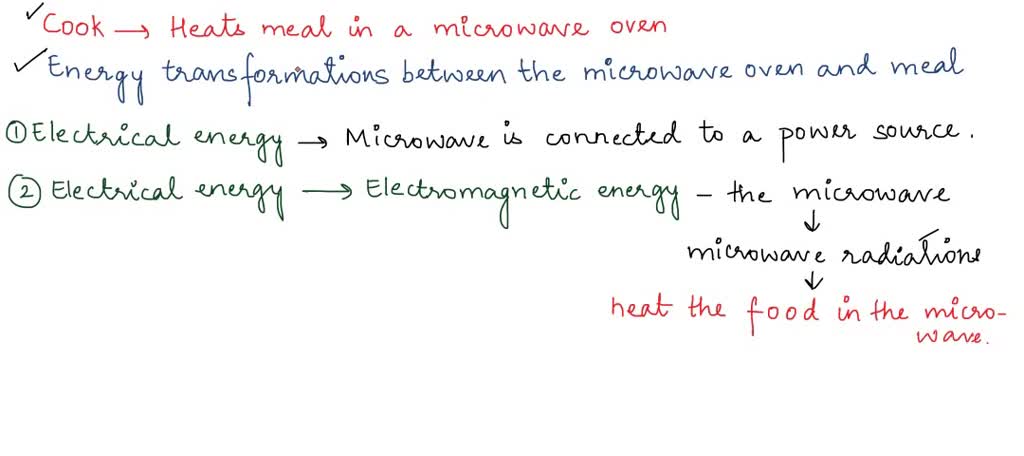 ✓Cook → Heats meal in a microwave oven
✓Energy transformations between the microwave oven and meal
① Electrical energy → Microwave is connected to a power source.
② Electrical energy → Electromagnetic energy – the microwave
↓
microwave radiations
↓
heat the food in the micro-
wave.